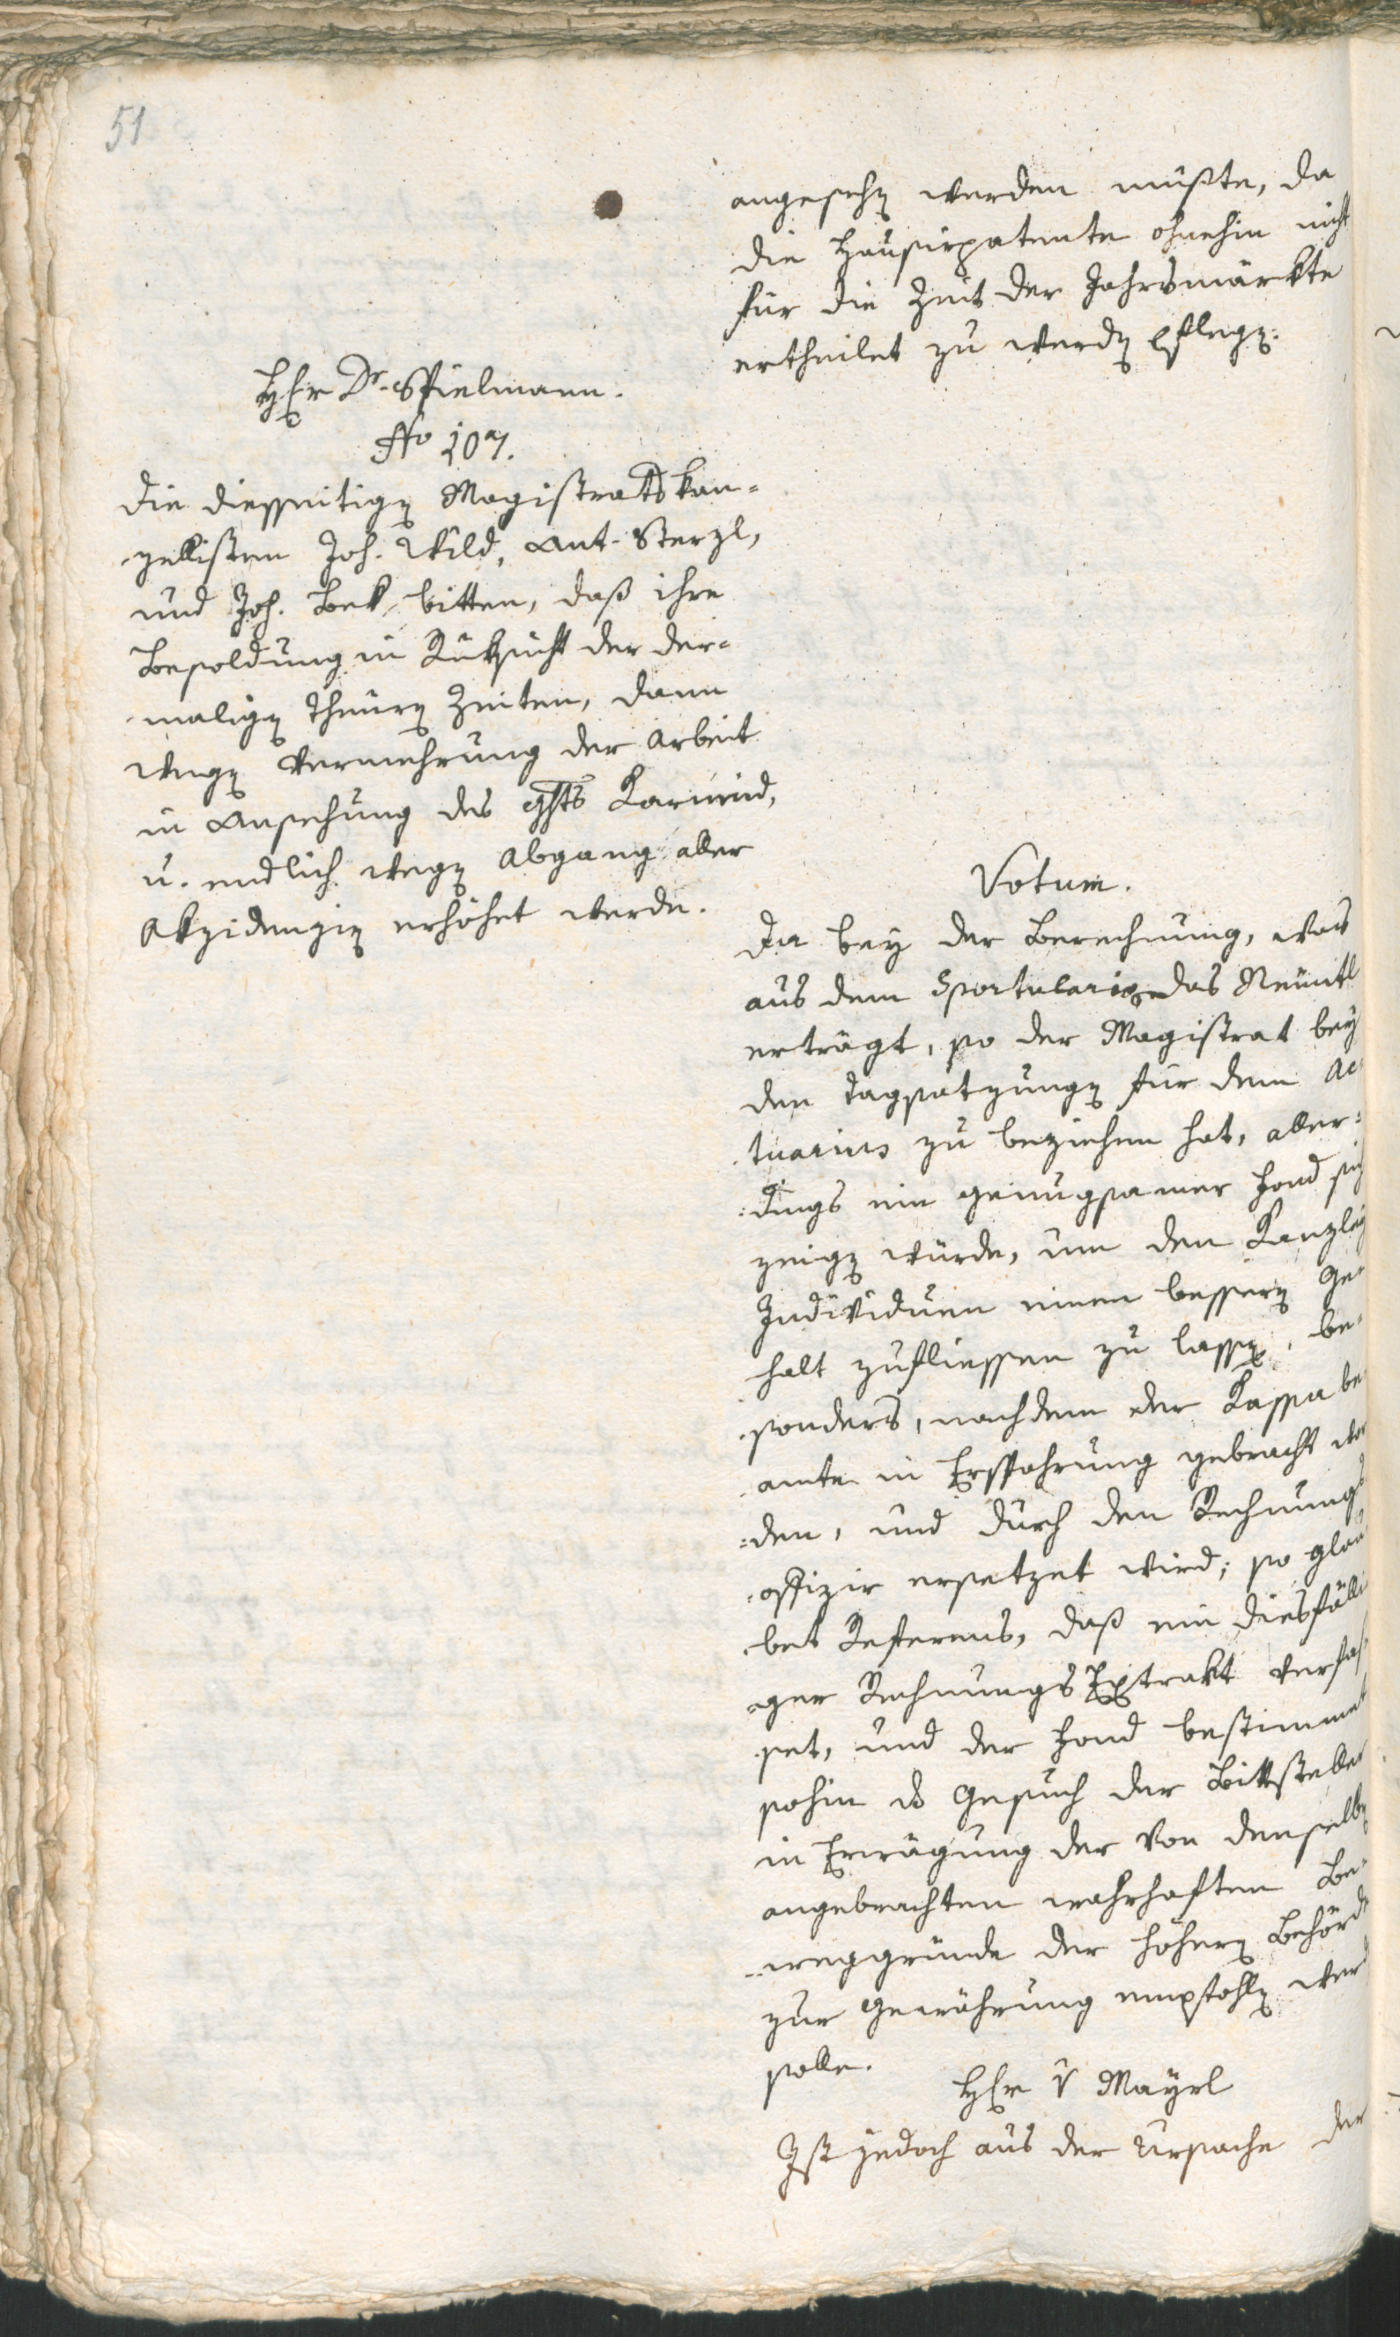 51
angesehen werden müßte, da
die Hausirpatente ohnehin nicht
für die Zeit der Jahrsmärkte
ertheilet zu werden pflegen.
HEr Dr. Spielmann.
No 107.
Die diesseitigen Magistrats kan=
zellisten Joh. Wild, Ant. Sterzl,
und Joh. Bek bitten, daß ihre
Besoldung in Rüksicht der der=
maligen theuren Zeiten, dann
wegen Vermehrung der Arbeit
in Ansehung des
u. endlich wegen Abgang aller
Akzidenzien erhöhet werde.
Votum.
Da bey der Berechnung, was
aus dem Sportulario das
erträgt, so der Magistrat bey
den Tagsatzungen für dem Ac
tuarius zu beziehen hat, aller=
dings ein genugsamer Fond sich
zeigen würde, um den Kanzley
Individuen einen bessern Ge=
halt zufliessen zu lassen, be=
sonders, nachdem der Kassa be
amte in Ersparung gebracht wor
den, und durch den Rechnungs
offizir ersetzet wird; so glau
bet Referens, daß ein diesfälli
ger Rechnungs Extrakt verfas
set, und der Fond bestimmet
sohin das Gesuch der Bittsteller
in Erwägung der von denselben
angebrachten wahrhaften Be=
weggründe der höhern Behörde
zur Gewährung empfohlen werd
solle.
HEr v Mayrl
Ist jedoch aus der Ursache der